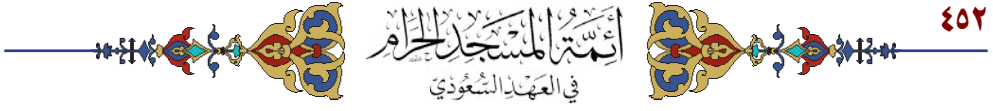 ٤٥٢
أَئِمَّةُ الْمَسْجِدِ الْحَرَامِ
فِي الْعَهْدِ السُّعُودِيِّ